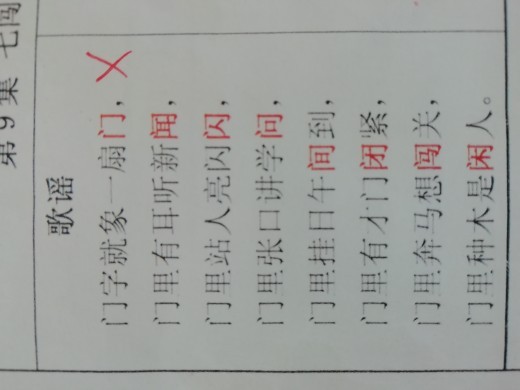 第9集 七闯
歌谣
门字就象一扇门，
门里有耳听新闻，
门里站人亮闪闪，
门里张口讲学问，
门里挂日午间到，
门里有才门闭紧，
门里奔马想闯关，
门里种木是闲人。